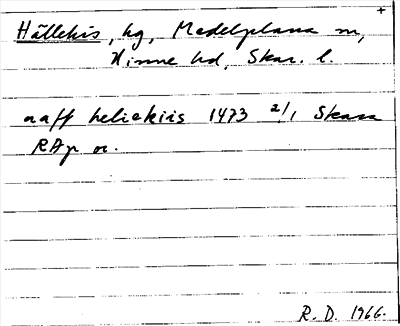 +
Hällekis, hg, Medelplana sn,
Kinne hd, Skar. l.
aaff heliekiis 1473 2/1 Skara
RAp or.
R. D. 1966.